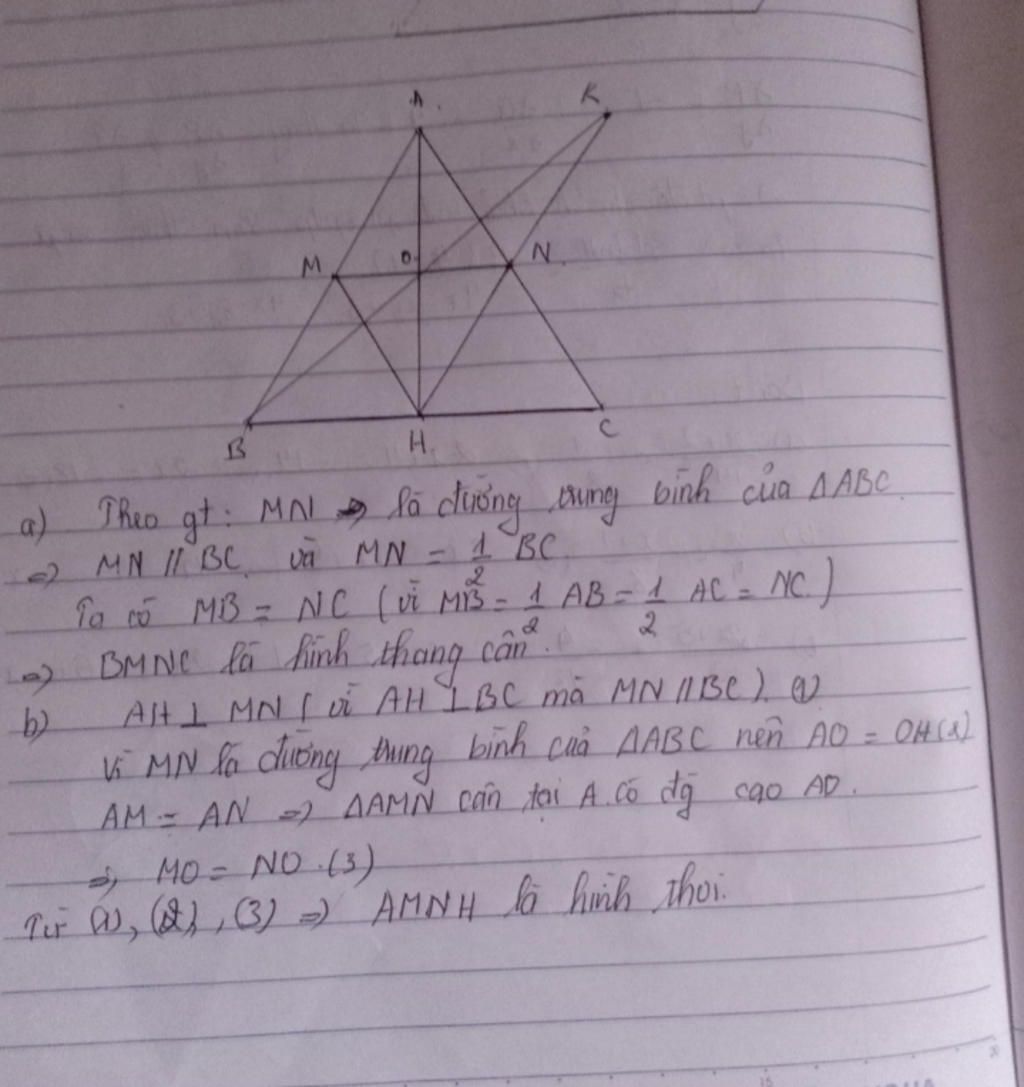 A.
K
M
O
N
B
H
C
a) Theo gt: MN là đường trung bình của ΔABC.
=> MN // BC và MN = 1/2 BC
Ta có MB = NC (vì MB = 1/2 AB = 1/2 AC = NC)
=> BMNC là hình thang cân.
b) AH ⊥ MN (vì AH ⊥ BC mà MN // BC) (1)
Vì MN là đường trung bình của ΔABC nên AO = OH (2)
AM = AN => ΔAMN cân tại A có đg cao AO.
=> MO = NO. (3)
Từ (1), (2), (3) => AMNH là hình thoi.